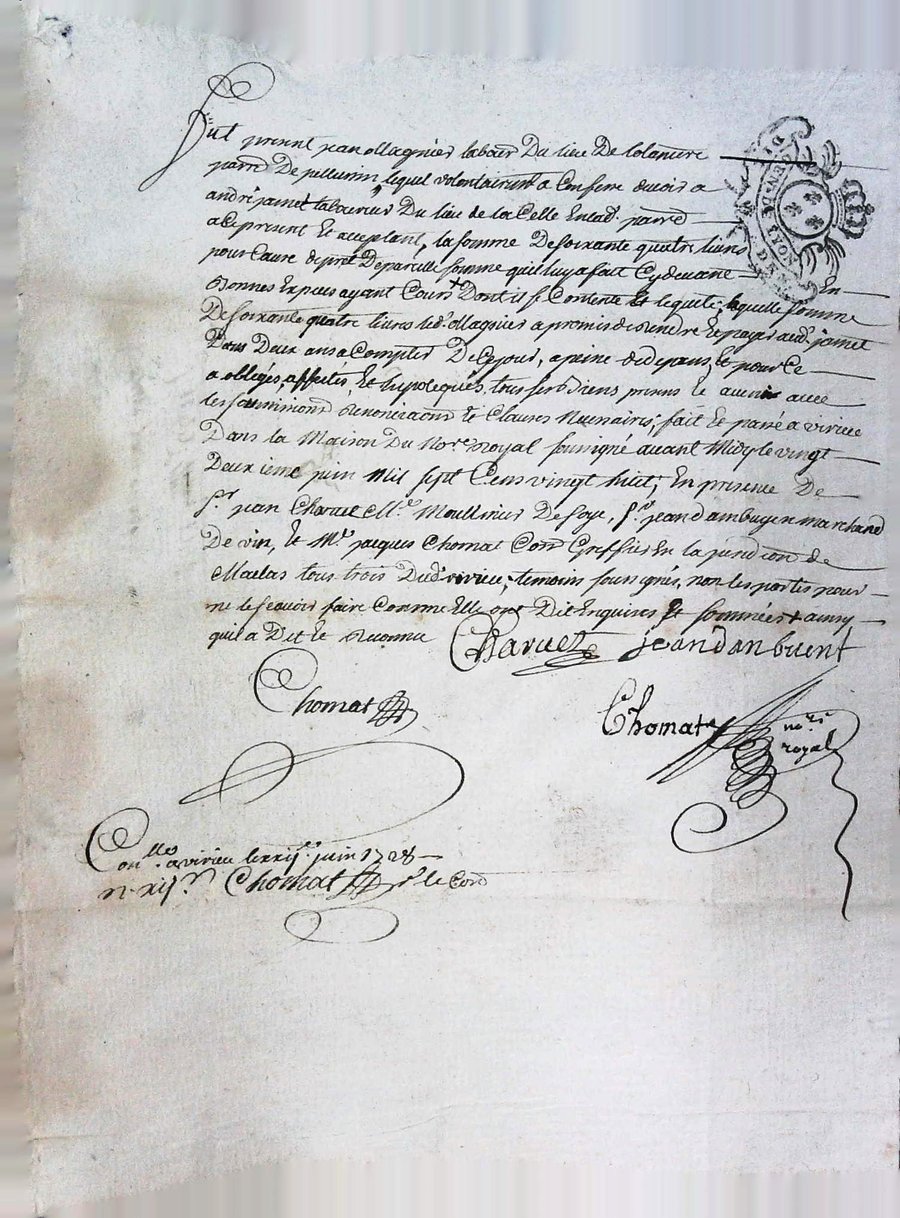 fut present jean ollagnier labour Du lieu De Coloniere
parr De pellussin, lequel volontairemt a Confessé devoir a
andré jamet laboureur Du lieu de la Celle En lad. parr
a Ce present Et acceptant, la somme De soixante quatre livres
pour Cause de pret De pareille somme qu'il luy a fait Cy devant En
Bonnes Especes ayant Cours Dont il se Contente Et laquelle somme
De soixante quatre livres led. ollagnier a promis de rendre Et payer aud. jamet
Dans Deux ans a Compter De Ce jour, a peine de depans, Et pour Ce
a obligés, affectés, Et hipotequés tous ses Biens presens Et avenir avec
les soumissions Renonciaons Et Clauses Necessaires, fait Et passé a virieu
Dans la Maison Du Nore royal soussigné avant Midy le vingt
Deuxieme juin Mil sept Cens vingt huict, En presence De
sr. jean Charvet Me. Moullinier De soye, sr. jean dambuyen marchand
De vin, Et Me. jacques Chomat Commis Greffier En la juridion de
Maclas tous trois Dud. virieu, temoins soussignés, non les parties pour
ne le scavoir faire Comme Elle ont Dit Enquises Et sommées ainsy
qu'il a Dit Et Reconnu
Charvet jean danbuent
Chomat
Chomat nore royal
Conllé a virieu le xxije. juin 1728
Chomat